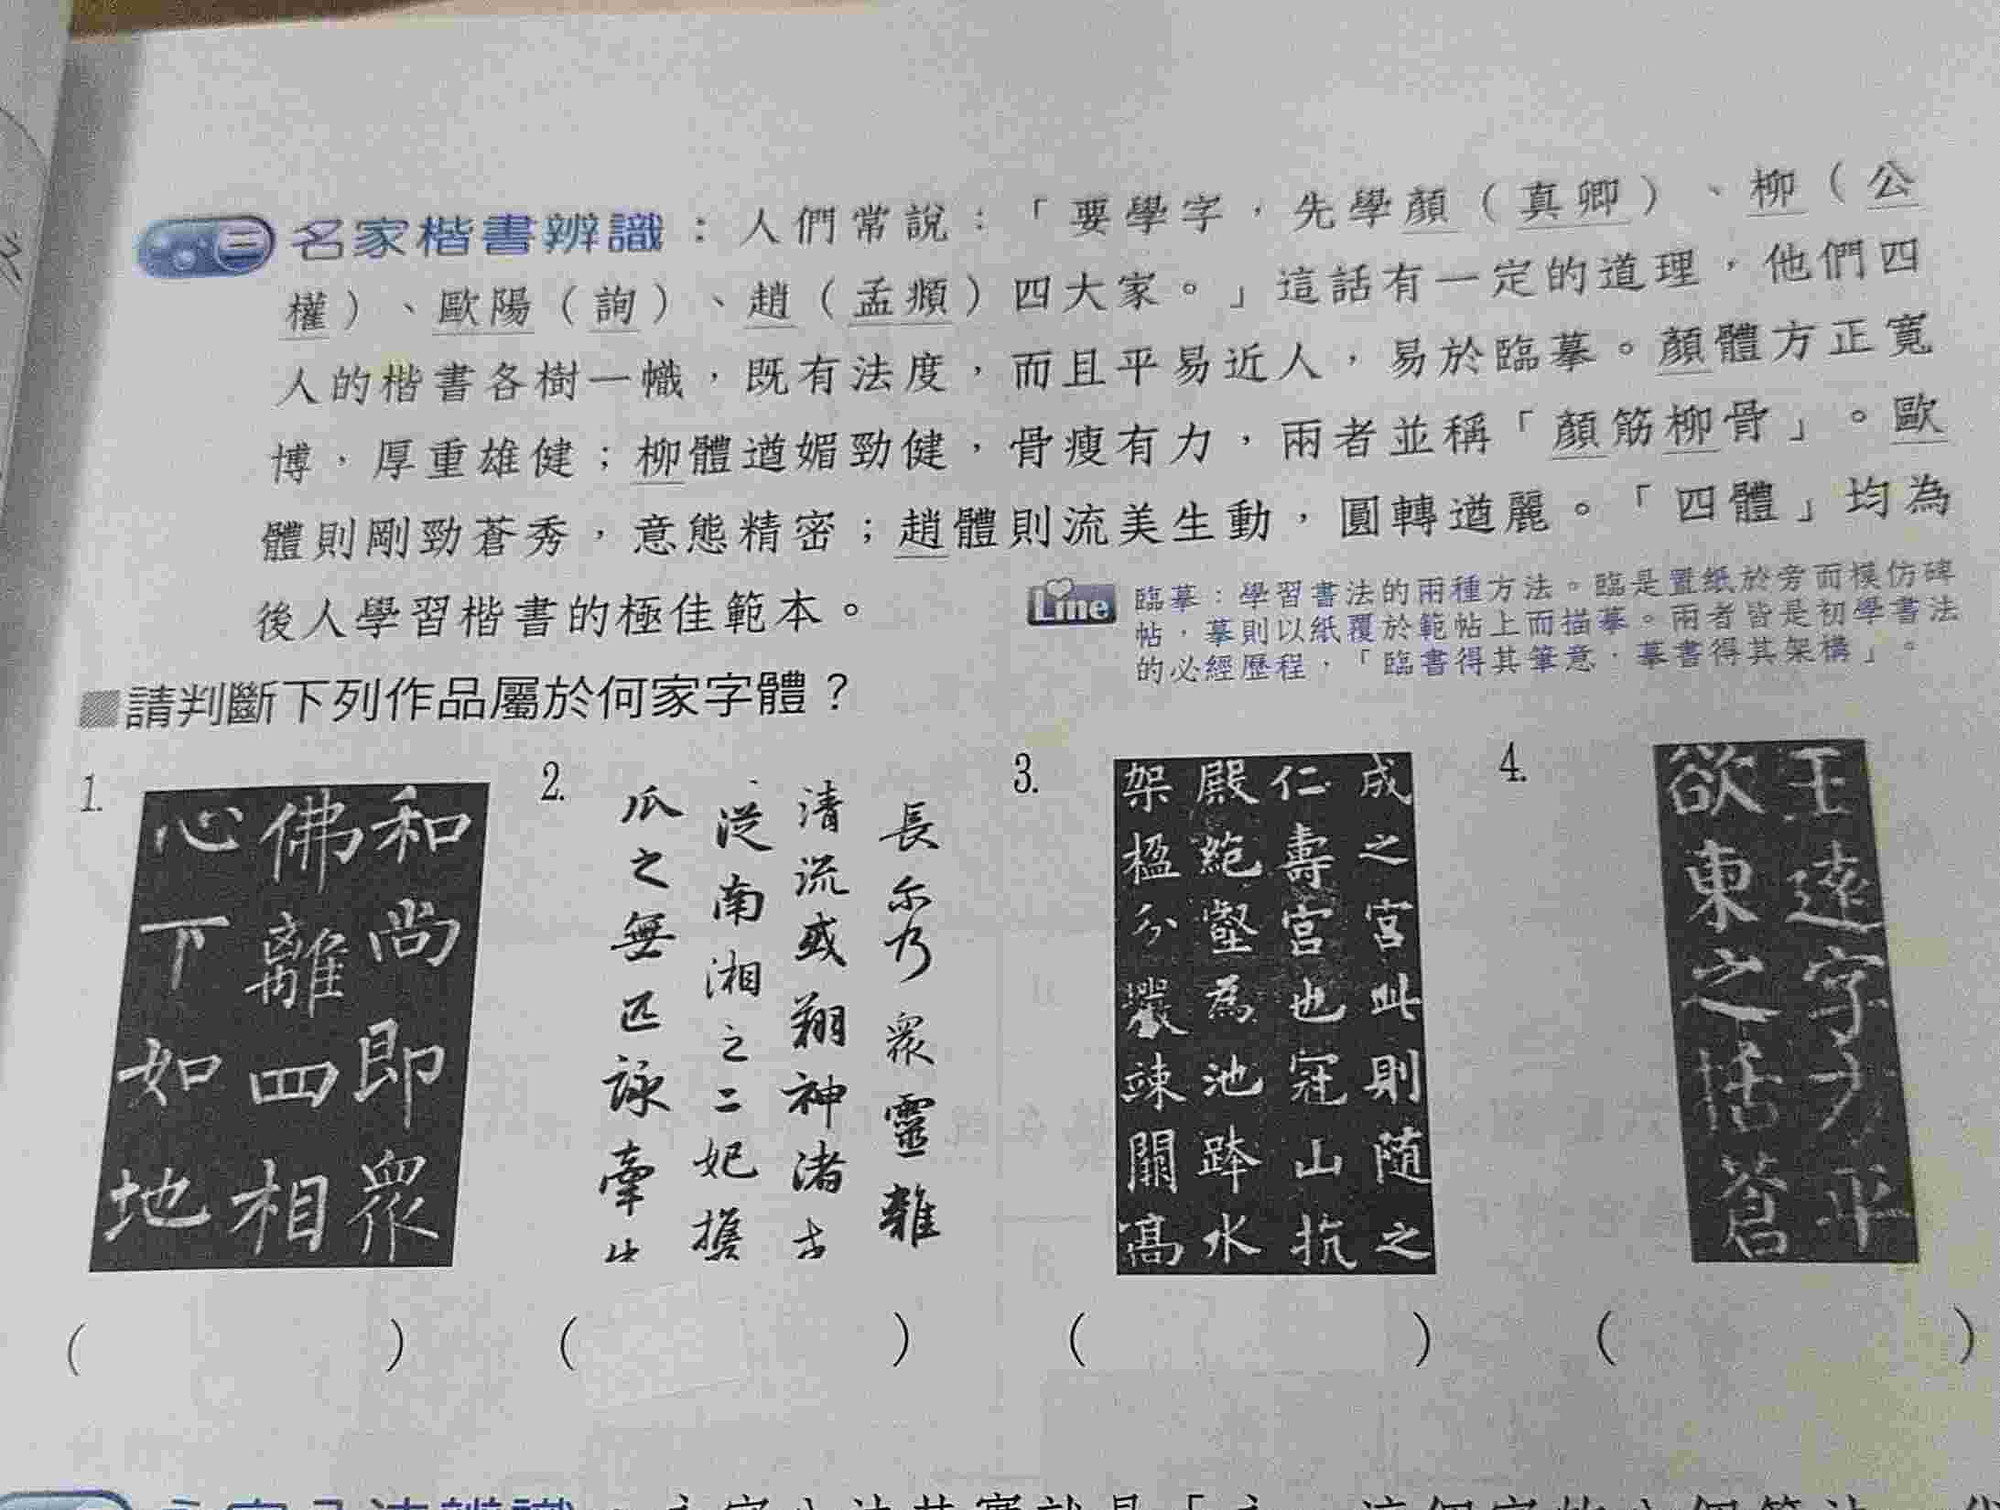 二 名家楷書辨識：人們常說：「要學字，先學顏（真卿）、柳（公
權）、歐陽（詢）、趙（孟頫）四大家。」這話有一定的道理，他們四
人的楷書各樹一幟，既有法度，而且平易近人，易於臨摹。顏體方正寬
博，厚重雄健；柳體遒媚勁健，骨瘦有力，兩者並稱「顏筋柳骨」。歐
體則剛勁蒼秀，意態精密；趙體則流美生動，圓轉遒麗。「四體」均為
後人學習楷書的極佳範本。
Line 臨摹：學習書法的兩種方法。臨是置紙於旁而模仿碑
帖，摹則以紙覆於範帖上而描摹。兩者皆是初學書法
的必經歷程，「臨書得其筆意，摹書得其架構」。
請判斷下列作品屬於何家字體？
1.
和尚即眾
佛離四相
心下如地
2.
長尒乃眾靈雜
清流或翔神渚
從南湘之二妃攜
瓜之無匹詠牽
3.
成之宮此則隨之
仁壽宮也冠山抗
殿絕壑為池跨水
架楹分巖竦闕高
4.
王遠字方平
欲東之括蒼
（　　）（　　）（　　）（　　）